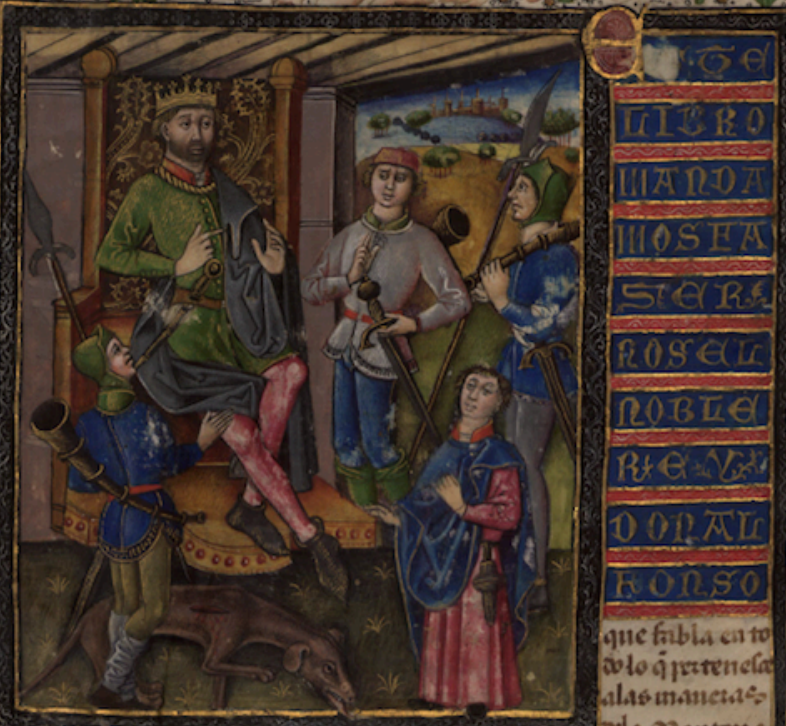 ESTE
LIBRO
MANDA
MOSFA
SER
NOS EL
NOBLE
REY
DON AL
FONSO
que fabla en to
do lo q̃ pertenesce
a las maneras